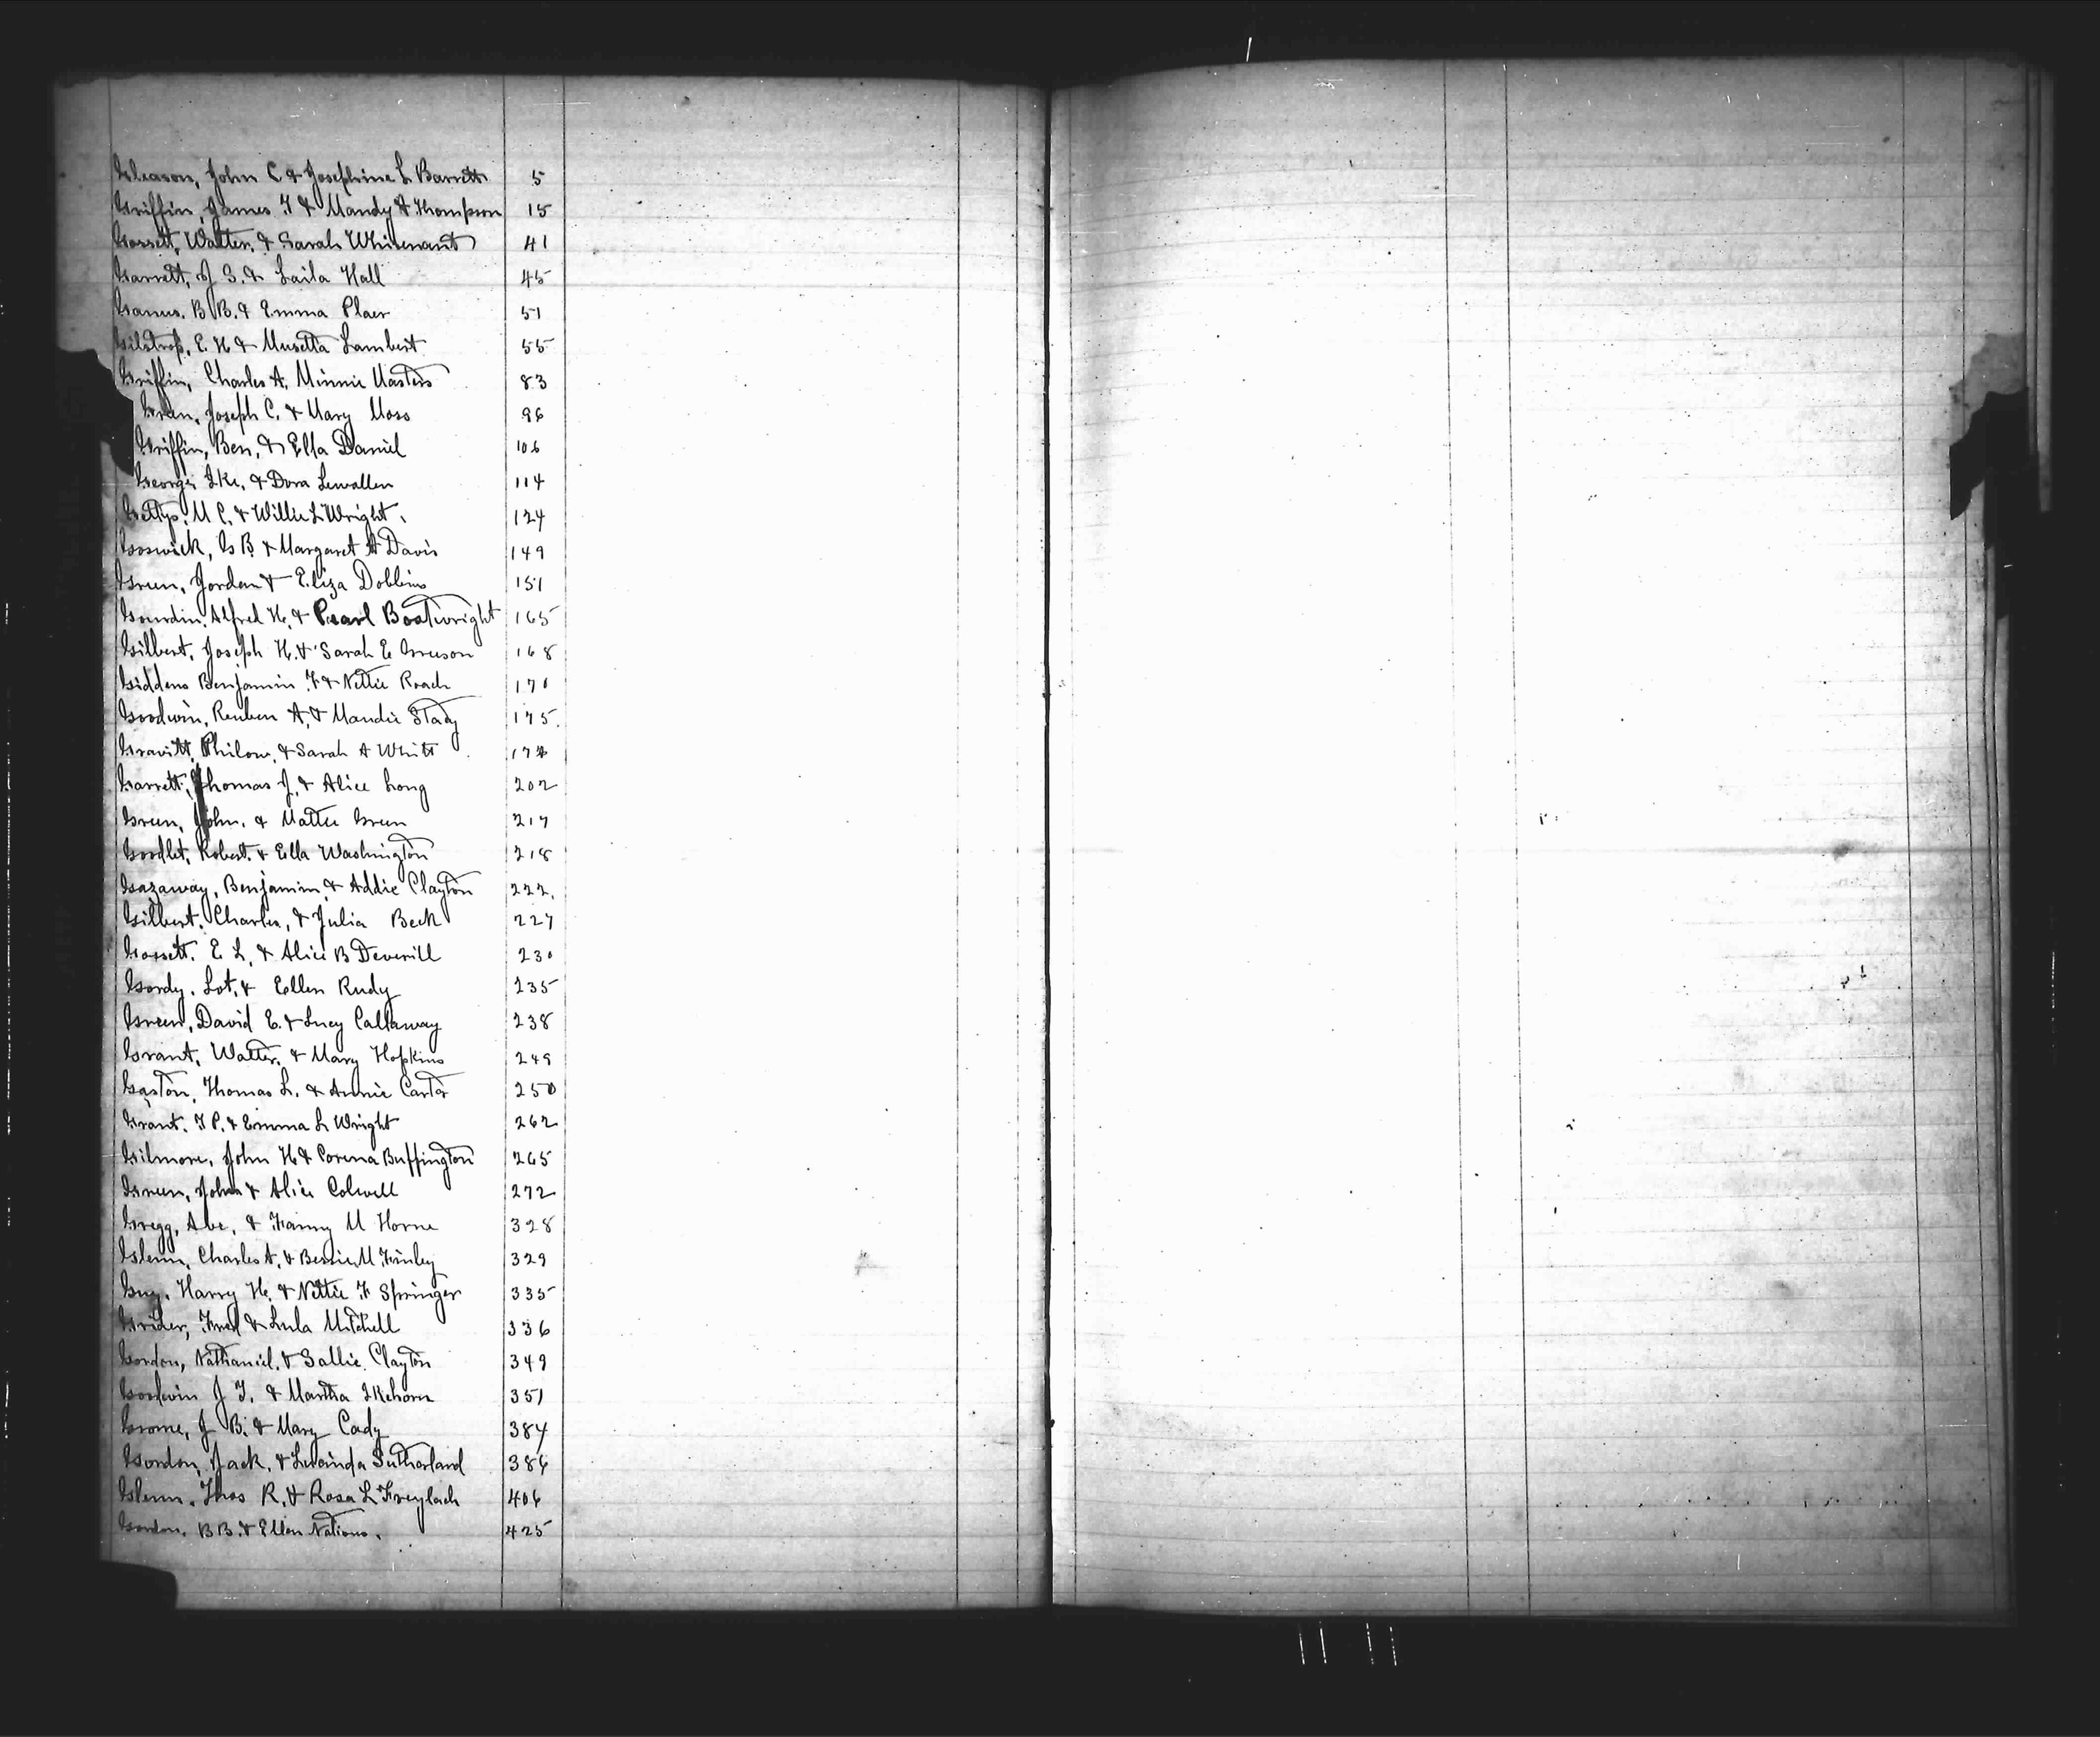 Gleason, John C & Josephine L Barrett 5
Griffin, James F & Mandy A Thompson 15
Gossett, Walter, & Sarah Whisenant 41
Garrett, J S. & Laila Hall 45
Ganus. B B. & Emma Plaer 51
Gilstrap, E. H & Musetta Lambert 55
Griffin, Charles A, Minnie Masters 83
Green, Joseph C. & Mary Moss 96
Griffin, Ben, & Ella Daniel 106
George, Ike, & Dora Lewallen 114
Gettys, M C. & Willie L Wright. 124
Goswick, G B. & Margaret A Davis 149
Green, Jordan & Eliza Dobbins 151
Gourdin, Alfred H. & Pearl Boatwright 165
Gilbert, Joseph H. & Sarah E Greeson 168
Giddens Benjamin F & Nettie Roach 170
Goodwin, Reuben A, & Mandie Stady 175
Gravitt, Philow, & Sarah A White
Garrett, Thomas J, & Alice Long 202
Green, John, & Mattie Green 217
Goodlet, Robert. & Ella Washington 218
Gazaway, Benjamin, & Addie Clayton 222
Gilbert, Charles, & Julia Beck 227
Gossett. E L, & Alice B Deverill 230
Gordy. Lot. & Ellen Rudy 235
Green, David E. & Lucy Callaway 238
Grant, Walter, & Mary Hopkins 249
Gaston, Thomas L. & Annie Carter 250
Grant. T P. & Emma L Wright 262
Gilmore, John H & Corena Buffington 265
Green, John & Alice Colwell 272
Gregg, Abe, & Fanny M Horne 328
Glenn, Charles A. & Bessie M. Finley 329
Guy, Harry H. & Nettie F Springer 335
Grider, Fred & Lula Mitchell 336
Gordon, Nathaniel, & Sallie Clayton 349
Goodwin J T. & Martha Ikehorn 351
Grome, J B. & Mary Cady 384
Gordon, Jack, & Lucinda Sutherland 386
Glenn, Thos R. & Rosa L Freylach 406
Gordon, B B. & Ellen Nations. 425